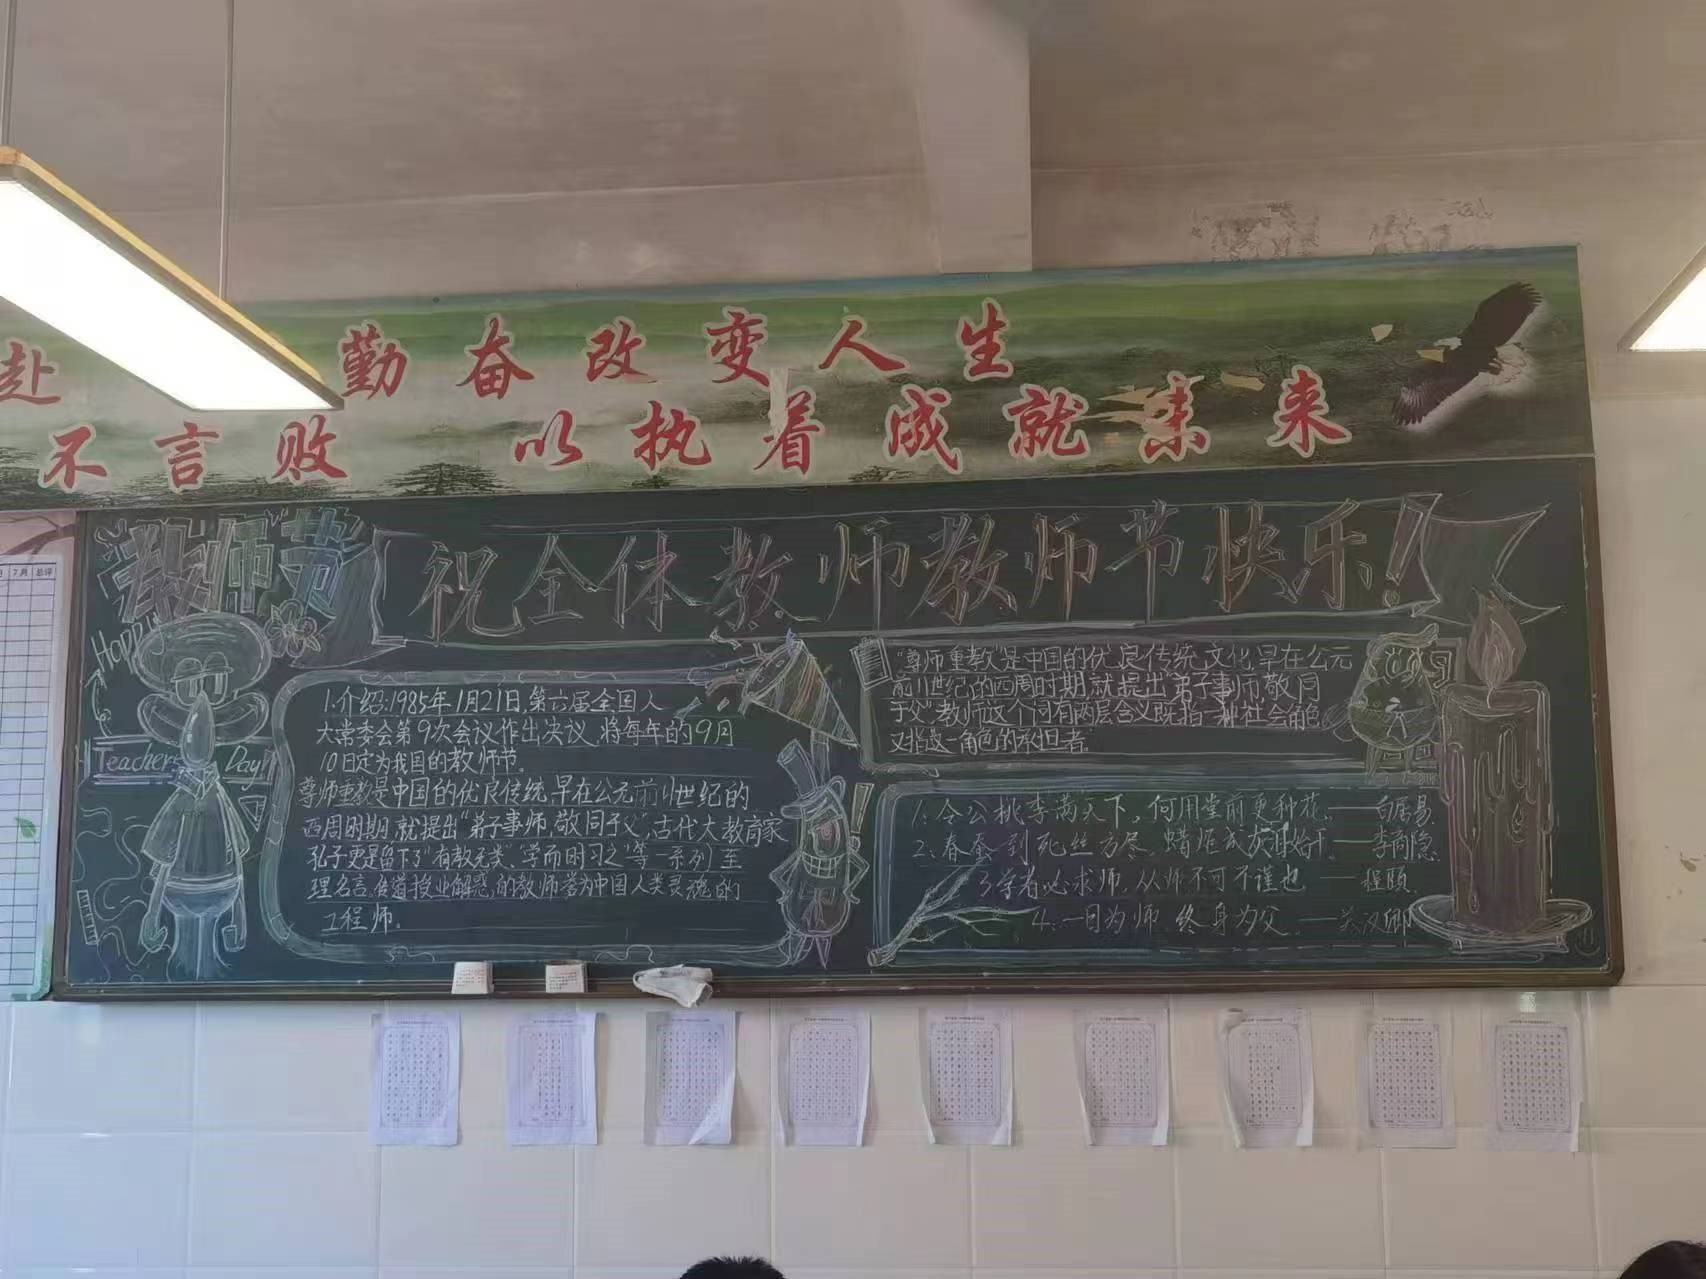 赴 勤奋改变人生
不言败 以执着成就未来
7月 总评
教师节
祝全体教师教师节快乐!
Happy
Teachers Day
1.介绍:1985年1月21日,第六届全国人
大常委会第9次会议作出决议,将每年的9月
10日定为我国的教师节。
尊师重教是中国的优良传统,早在公元前11世纪的
西周时期,就提出"弟子事师,敬同于父",古代大教育家
孔子更是留下了"有教无类"、"学而时习之"等一系列至
理名言,传道授业解惑,的教师誉为中国人类灵魂的
工程师。
"尊师重教"是中国的优良传统文化,早在公元
前11世纪的西周时期,就提出"弟子事师,敬同
于父".教师这个词有两层含义既指一种社会角色
又指这一角色的承担者.
1、令公桃李满天下,何用堂前更种花。——白居易.
2、春蚕到死丝方尽,蜡炬成灰泪始干.——李商隐.
3学者必求师,从师不可不谨也 ——程颐.
4.一日为师,终身为父. ——关汉卿